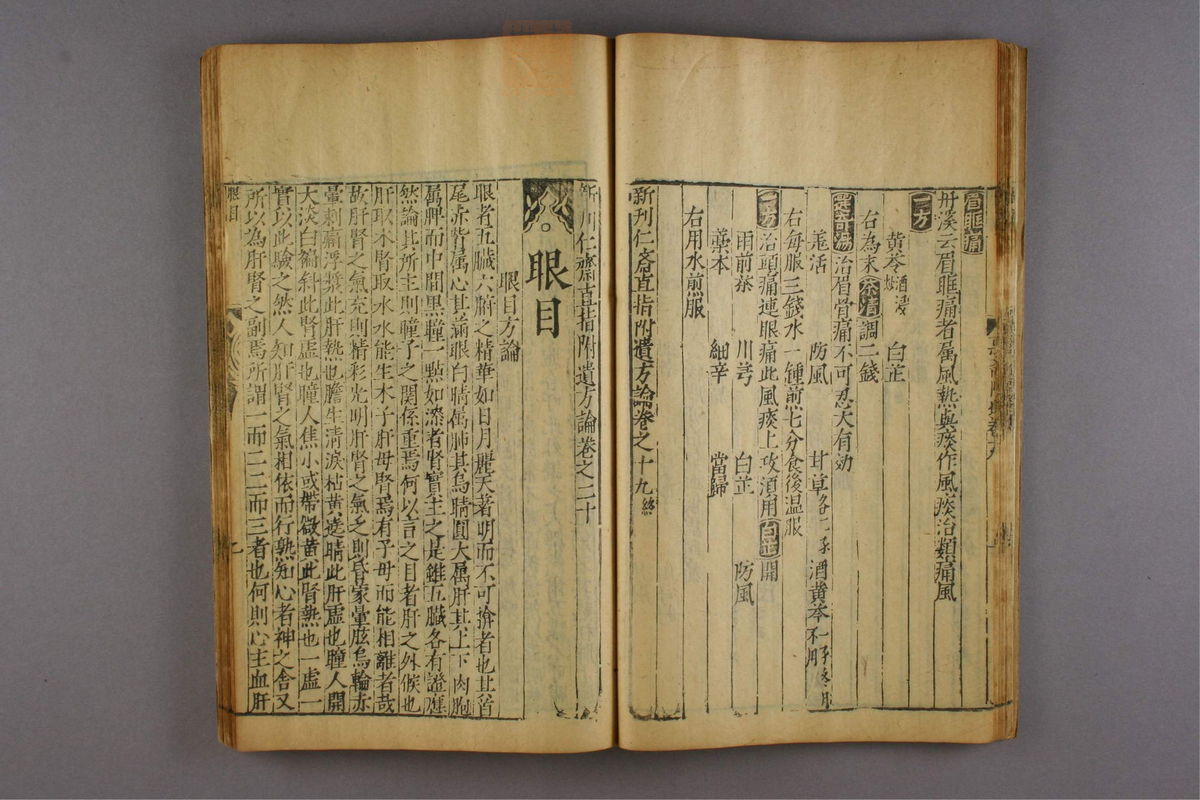 眉眶痛
丹溪云眉眶痛者属風熱與痰作風痰治類痛風
一方
黄芩酒浸炒 白芷
右為末茶清調二錢
選竒湯治眉骨痛不可忍大有効
羗活 防風 甘草 酒黄芩
右每服三錢水一鍾煎七分食後温服
一方治頭痛連眼痛此風痰上攻湏用白芷開
雨前茶 川芎 白芷 防風
藁本 細辛 當歸
右用水煎服
新刊仁斎直指附遺方論卷之十九終
新刊仁齋直指附遺方論卷之二十
眼目
眼目方論
眼者五臟六腑之精華如日月麗天著明而不可揜者也其首
尾赤眥属心其滿眼白睛属肺其烏睛圓大属肝其上下肉胞
属脾而中間黒瞳一點如漆者腎實主之是雖五臟各有證應
然論其所主則瞳子之関係重焉何以言之目者肝之外候也
肝取木腎取水水能生木子肝母腎焉有子母而能相離者哉
故肝腎之氣充則精彩光明肝腎之氣乏則昏蒙暈眩烏輪赤
暈刺痛浮漿此肝熱也膽生清淚枯黄遶睛此肝虚也瞳人開
大淡白徧斜此腎虚也瞳人焦小或帶微黄此腎熱也一虚一
實以此驗之然人知肝腎之氣相依而行孰知心者神之舍又
所以為肝腎之副焉所謂一而二二而三者也何則心主血肝
眼目